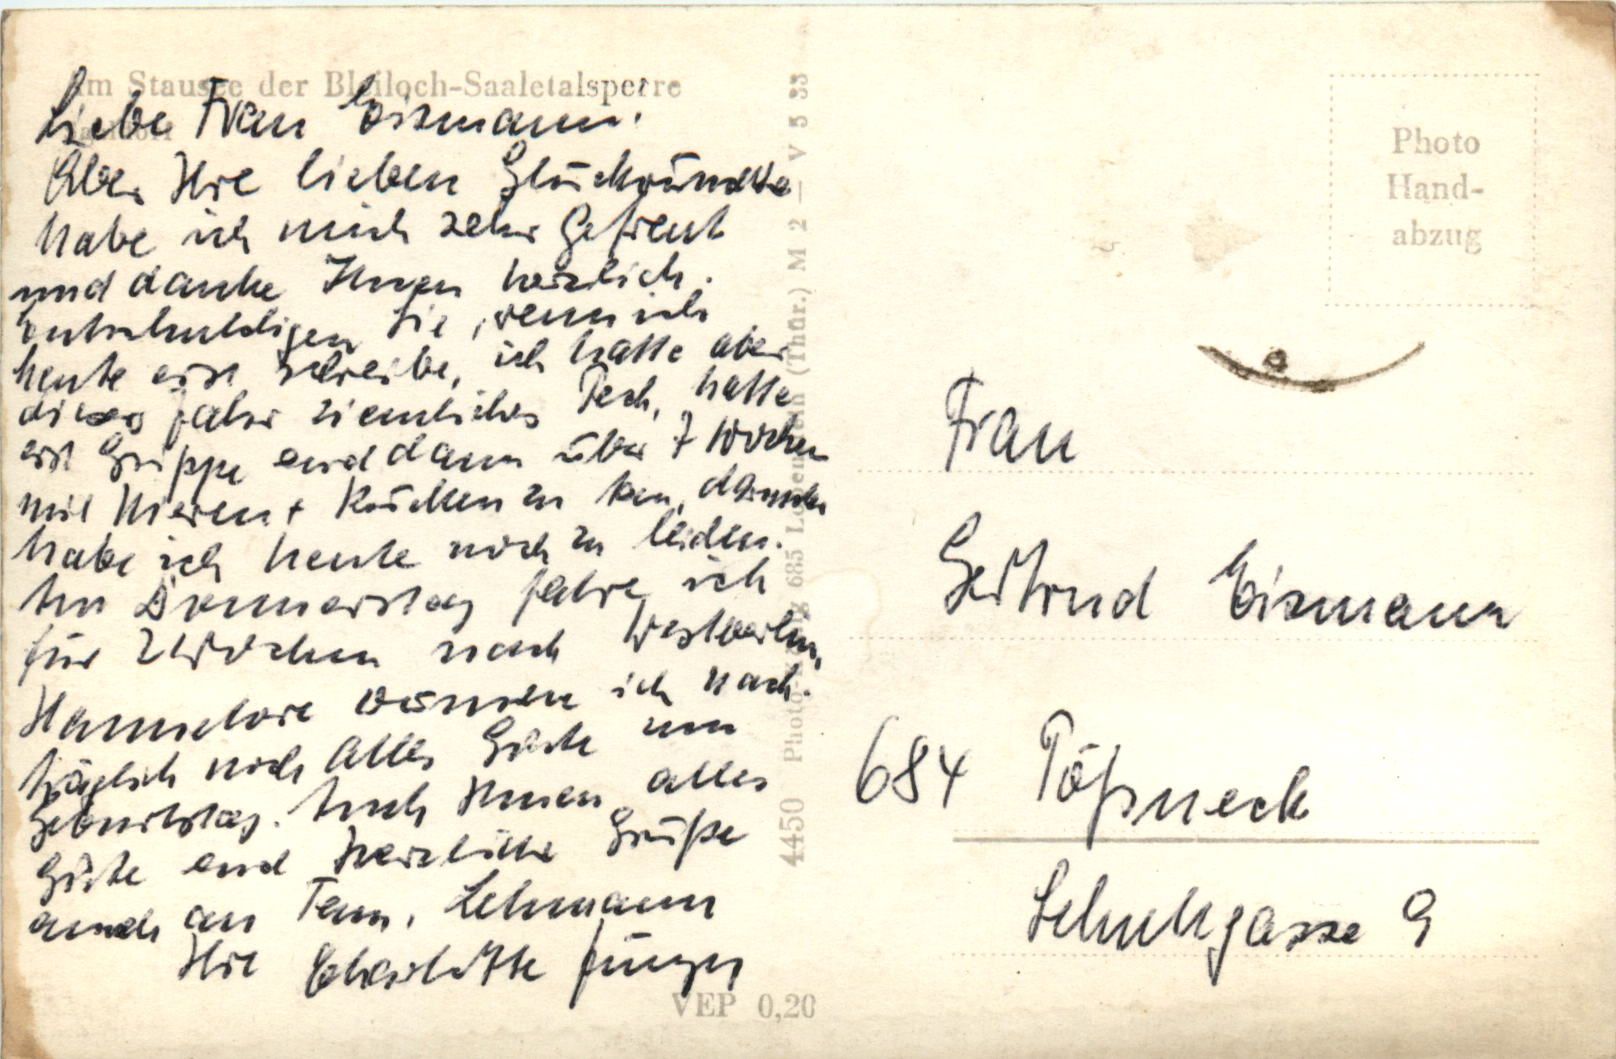 Am Stausee der Bleiloch-Saaletalsperre
Liebe Frau Eismann.
Über Ihre lieben Glückwünsche
habe ich mich sehr gefreut
und danke Ihnen herzlich.
Entschuldigen Sie, wenn ich
heute erst schreibe, ich hatte aber
dieses Jahr ziemliches Pech, hatte
erst Grippe und dann über 7 Wochen
mit Nieren + Rücken zu tun, darunter
habe ich heute noch zu leiden.
Am Donnerstag fahre ich
für 2 Wochen nach Westberlin,
Hannelore wünsche ich nach-
träglich noch alles Gute zum
Geburtstag. Auch Ihnen alles
Gute und herzliche Grüße
auch an Fam. Lehmann
Ihre Charlotte Jünger
VEP 0,20
4450 (Thür.) M 2 — V 5 33
Photo
Hand-
abzug
Frau
Gertrud Eismann
684 Pößneck
Schuhgasse 9